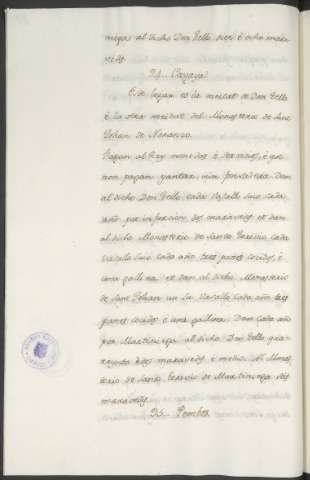 niega al dicho Don Tello diez é ocho mara-
vedis.
24.
Este logar es la meitat de Don Tello
é la otra meitat del Monesterio de Sant
Johan de Naranco.
Pagan al Rey monedas é servicios, é que
non pagan yantar, nin fonsadera. Dan
al dicho Don Tello cada Vasallo suio cada
año por infurcion dos maravedis et dan
al dicho Monesterio de Santo cada
Vasallo suio cada año tres panes cocidos, é
una gallina. et dan al dicho Monesterio
de Sant Johan un su Vasallo cada año tres
panes cocidos é una gallina. Dan cada año
por Martiniega al dicho Don Tello qua-
renta é dos maravedis é medio. Al Mones-
terio de Santo de Martiniega seis
maravedis.
25. Pombes